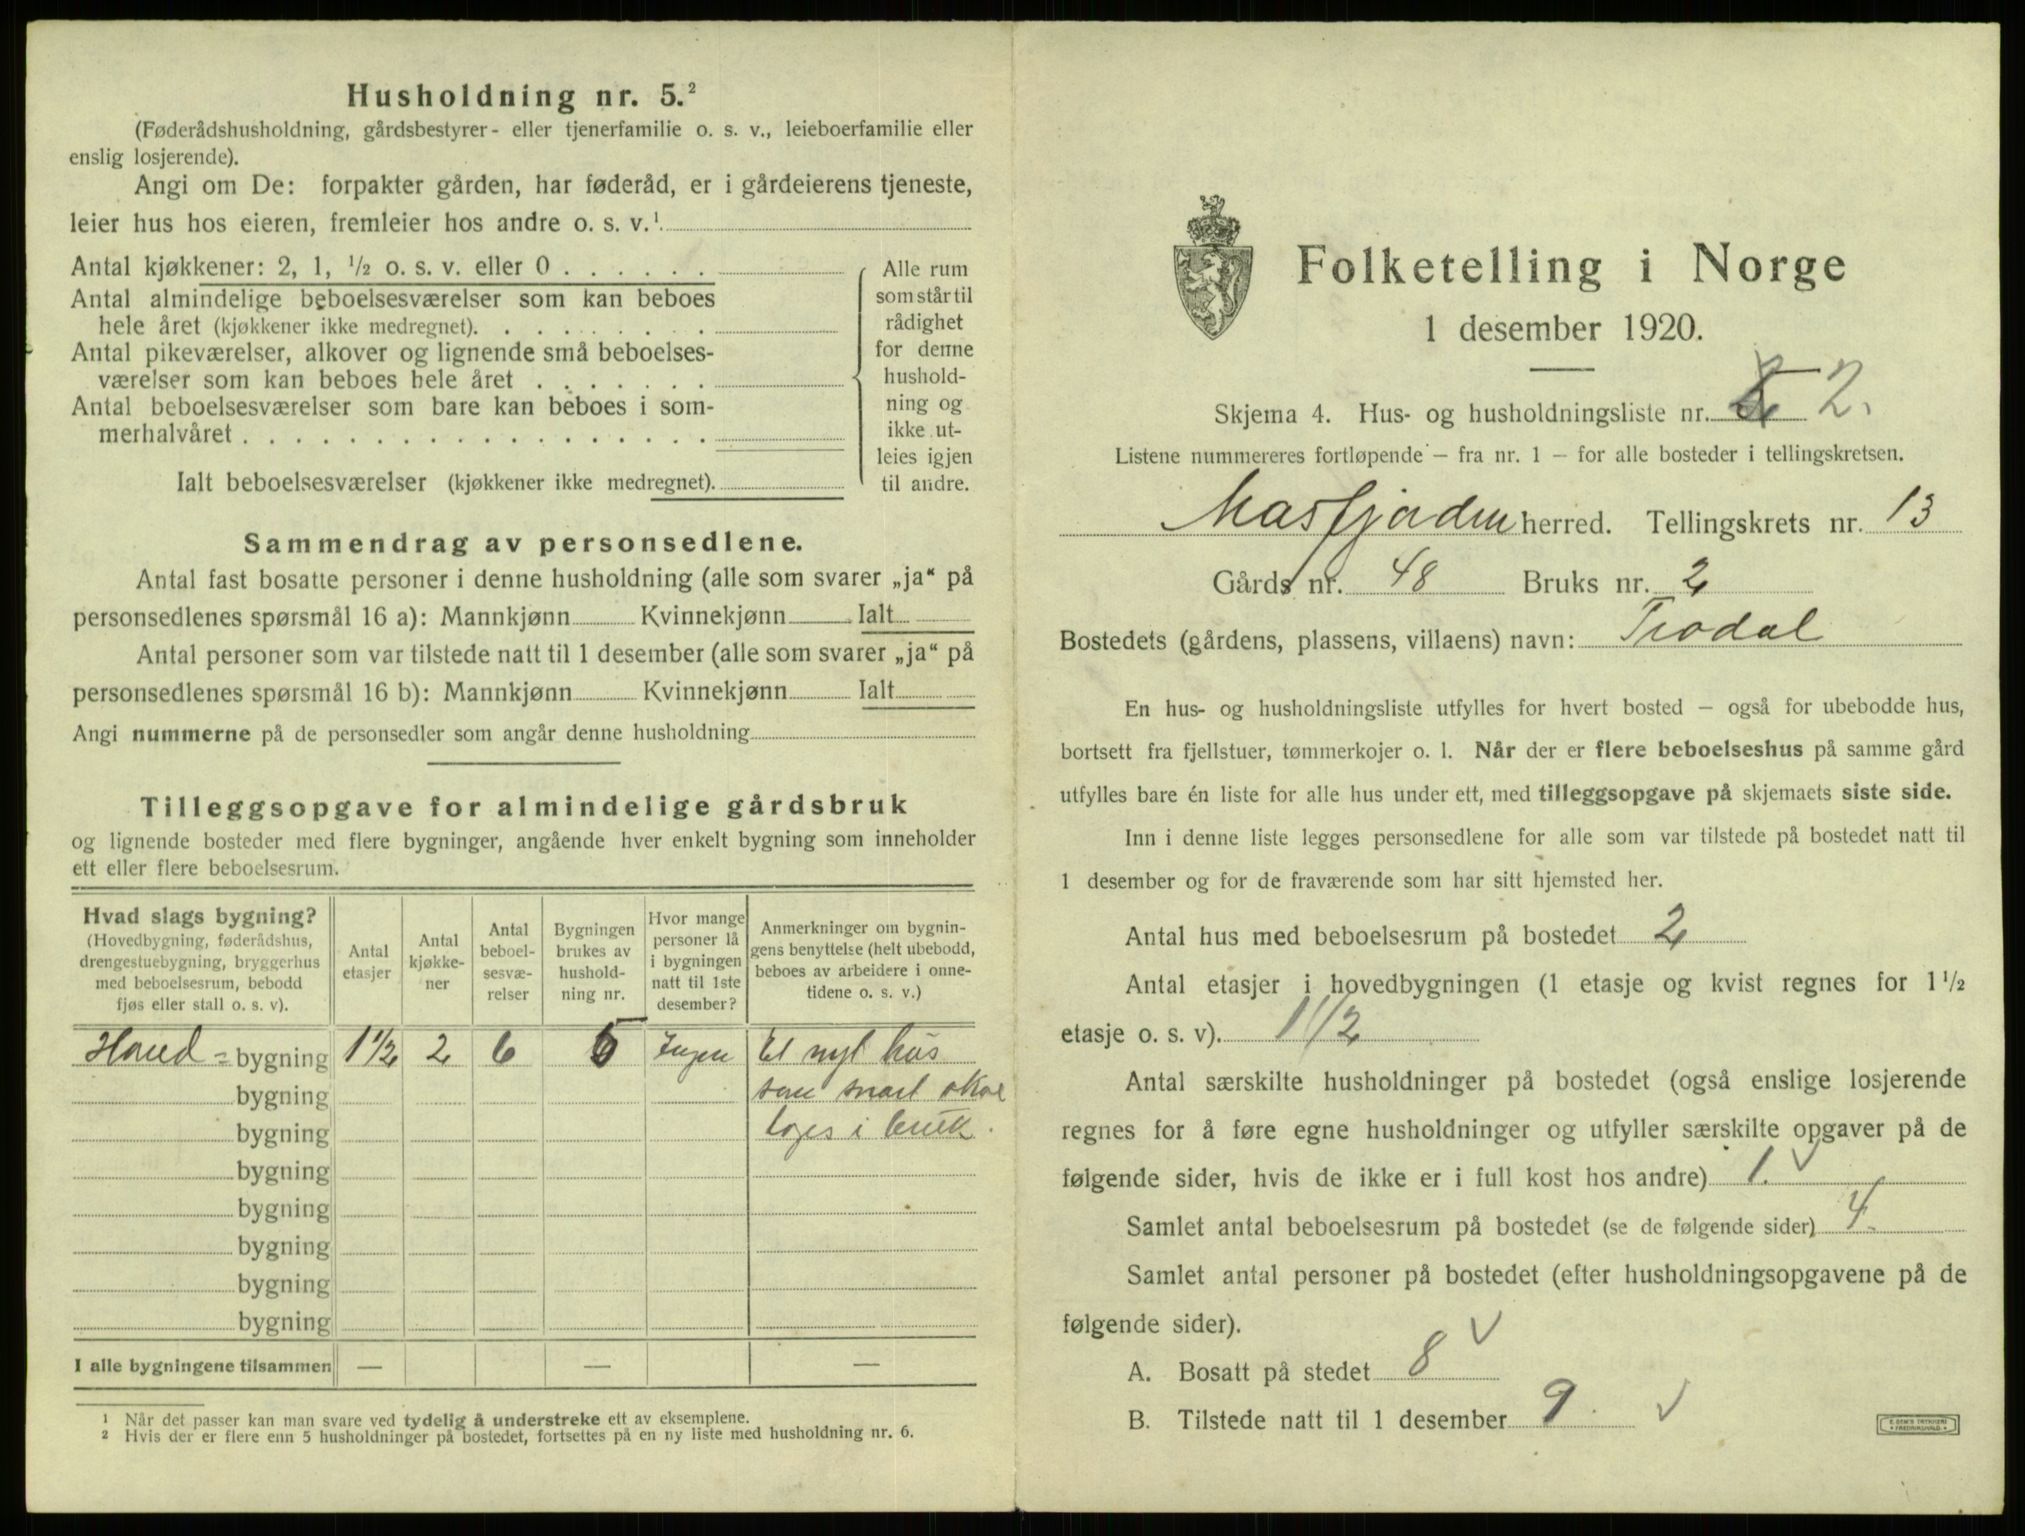 Husholdning nr. 5.²
(Føderådshusholdning, gårdsbestyrer- eller tjenerfamilie o. s. v., leieboerfamilie eller
enslig losjerende).
Angi om De: forpakter gården, har føderåd, er i gårdeierens tjeneste,
leier hus hos eieren, fremleier hos andre o. s. v.¹
Antal kjøkkener: 2, 1, ½ o. s. v. eller 0 . . . . . .
Antal almindelige beboelsesværelser som kan beboes
hele året (kjøkkener ikke medregnet). . . . . . . . .
Antal pikeværelser, alkover og lignende små beboelses-
værelser som kan beboes hele året . . . . . . .
Antal beboelsesværelser som bare kan beboes i som-
merhalvåret . . . . . . . . . . . . . . . . . .
Ialt beboelsesværelser (kjøkkener ikke medregnet).
Alle rum
som står til
rådighet
for denne
hushold-
ning og
ikke ut-
leies igjen
til andre.
Sammendrag av personsedlene.
Antal fast bosatte personer i denne husholdning (alle som svarer „ja“ på
personsedlenes spørsmål 16 a): Mannkjønn Kvinnekjønn Ialt
Antal personer som var tilstede natt til 1 desember (alle som svarer „ja“ på
personsedlenes spørsmål 16 b): Mannkjønn Kvinnekjønn Ialt
Angi nummerne på de personsedler som angår denne husholdning
Tilleggsopgave for almindelige gårdsbruk
og lignende bosteder med flere bygninger, angående hver enkelt bygning som inneholder
ett eller flere beboelsesrum.
Hvad slags bygning?
(Hovedbygning, føderådshus,
drengestuebygning, bryggerhus
med beboelsesrum, bebodd
fjøs eller stall o. s. v).
Antal
etasjer
Antal
kjøkke-
ner
Antal
beboel-
sesvæ-
relser
Bygningen
brukes av
hushold-
ning nr.
Hvor mange
personer lå
i bygningen
natt til 1ste
desember?
Anmerkninger om bygnin-
gens benyttelse (helt ubebodd,
beboes av arbeidere i onne-
tidene o. s. v.)
Hoved = bygning 1½ 2 6 Ingen Et nyt hus
bygning som snart skal
bygning tages i bruk.
bygning
bygning
bygning
bygning
bygning
I alle bygningene tilsammen — — —
¹ Når det passer kan man svare ved tydelig å understreke ett av eksemplene.
² Hvis der er flere enn 5 husholdninger på bostedet, fortsettes på en ny liste med husholdning nr. 6.
Folketelling i Norge
1 desember 1920.
Skjema 4. Hus- og husholdningsliste nr. 2.
Listene nummereres fortløpende — fra nr. 1 — for alle bosteder i tellingskretsen.
Masfjorden herred. Tellingskrets nr. 13
Gårds nr. 48 Bruks nr. 2
Bostedets (gårdens, plassens, villaens) navn: Trodal
En hus- og husholdningsliste utfylles for hvert bosted — også for ubebodde hus,
bortsett fra fjellstuer, tømmerkojer o. l. Når der er flere beboelseshus på samme gård
utfylles bare én liste for alle hus under ett, med tilleggsopgave på skjemaets siste side.
Inn i denne liste legges personsedlene for alle som var tilstede på bostedet natt til
1 desember og for de fraværende som har sitt hjemsted her.
Antal hus med beboelsesrum på bostedet 2
Antal etasjer i hovedbygningen (1 etasje og kvist regnes for 1½
etasje o. s. v). 1 1/2
Antal særskilte husholdninger på bostedet (også enslige losjerende
regnes for å føre egne husholdninger og utfyller særskilte opgaver på de
følgende sider, hvis de ikke er i full kost hos andre) 1.
Samlet antal beboelsesrum på bostedet (se de følgende sider) 4.
Samlet antal personer på bostedet (efter husholdningsopgavene på de
følgende sider).
A. Bosatt på stedet 8
B. Tilstede natt til 1 desember 9.